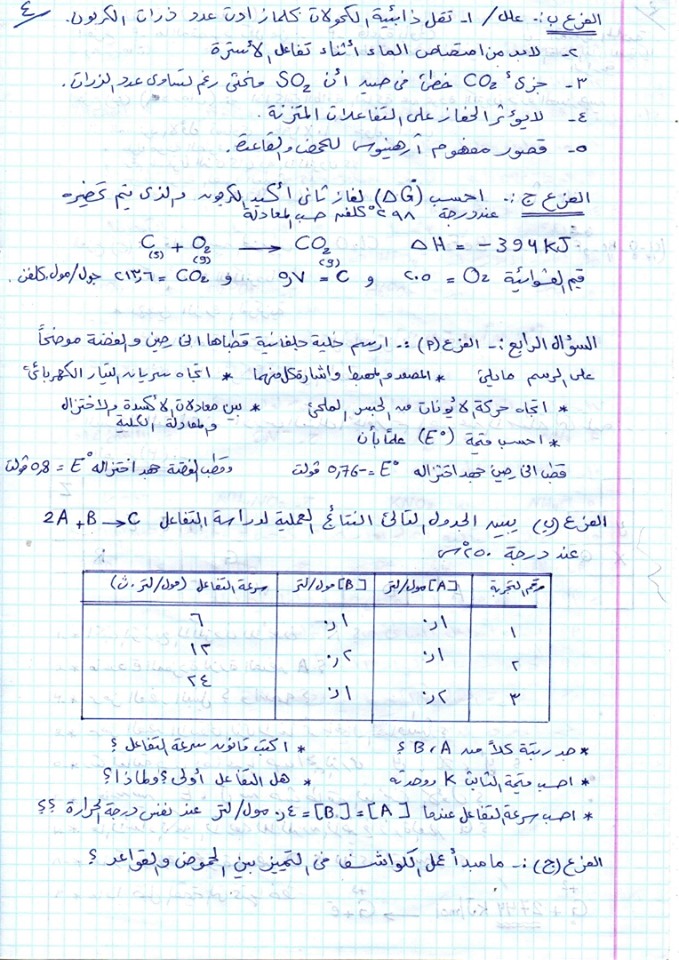 ٤
الفرع ب :- علل / ١- تقل ذائبية الكحولات كلما زادت عدد ذرات الكربون.
٢- لابد من امتصاص الماء أثناء تفاعل الأسترة
٣- جزيء CO2 خطي في حين أن SO2 منحني رغم تساوي عدد الذرات.
٤- لا يؤثر الحفاز على التفاعلات المتزنة.
٥- قصور مفهوم أرهينوس للحمض والقاعدة.
الفرع ج :- احسب (ΔG°) لغاز ثاني أكسيد الكربون والذي يتم تحضيره
عند درجة ٢٩٨° كلفن حسب المعادلة
C(s) + O2(g) → CO2(g) ΔH = -394 kJ
قيم العشوائية O2 = ٢٠٥ و C = ٥,٧ و CO2 = ٢١٣,٦ جول/مول.كلفن.
السؤال الرابع :- الفرع (أ) :- ارسم خلية جلفانية قطباها الخارصين والفضة موضحاً
على الرسم مايلي * المصعد والمهبط واشارة كل منهما * اتجاه سريان التيار الكهربائي
* اتجاه حركة الأيونات من الجسر الملحي * بين معادلات الأكسدة والاختزال
والمعادلة الكلية
* احسب قيمة (E°) علماً بأن
قطب الخارصين جهد اختزاله E° = -٠,٧٦ فولت وقطب الفضة جهد اختزاله E° = ٠,٨ فولت
الفرع (ب) يبين الجدول التالي النتائج العملية لدراسة التفاعل 2A + B → C
عند درجة ٢٥٠°س
رقم التجربة [A] مول/لتر [B] مول/لتر سرعة التفاعل (مول/لتر.ث)
١ ٠,١ ٠,١ ٦
٢ ٠,١ ٠,٢ ١٢
٣ ٠,٢ ٠,١ ٢٤
* حدد رتبة كلاً من B , A ؟ * اكتب قانون سرعة التفاعل ؟
* احسب قيمة الثابت K ووحدته * هل التفاعل أولي ؟ ولماذا ؟
* احسب سرعة التفاعل عندما [A] = [B] = ٠,٤ مول/لتر عند نفس درجة الحرارة ؟؟
الفرع (ج) :- ما مبدأ عمل الكواشف في التمييز بين الحموض والقواعد ؟